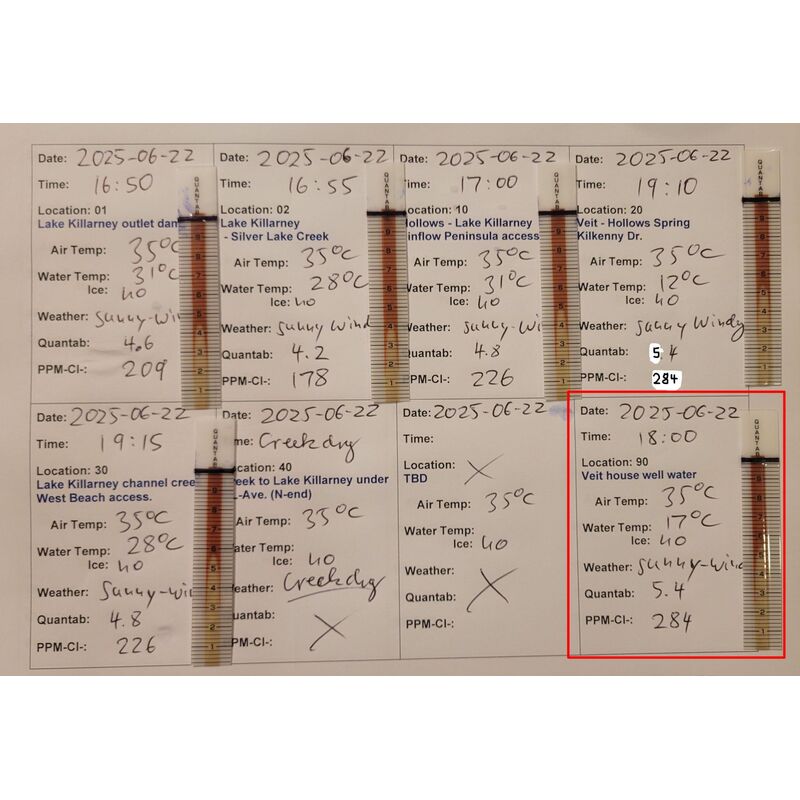 Date: 2025-06-22
Time: 16:50
Location: 01
Lake Killarney outlet dam
Air Temp: 35°C
Water Temp: 31°C
Ice: no
Weather: sunny-wi
Quantab: 4.6
PPM-Cl-: 209
QUANTAB
9
8
7
6
5
4
3
2
1
Date: 2025-06-22
Time: 16:55
Location: 02
Lake Killarney
- Silver Lake Creek
Air Temp: 35°C
Water Temp: 28°C
Ice: no
Weather: sunny wind
Quantab: 4.2
PPM-Cl-: 178
QUANTAB
9
8
7
6
5
4
3
2
1
Date: 2025-06-22
Time: 17:00
Location: 10
Hollows - Lake Killarney
inflow Peninsula access
Air Temp: 35°C
Water Temp: 31°C
Ice: no
Weather: sunny-wi
Quantab: 4.8
PPM-Cl-: 226
QUANTAB
9
8
7
6
5
4
3
2
1
Date: 2025-06-22
Time: 19:10
Location: 20
Veit - Hollows Spring
Kilkenny Dr.
Air Temp: 35°C
Water Temp: 12°C
Ice: no
Weather: sunny windy
Quantab: 5.4
PPM-Cl-: 284
QUANTAB
9
8
7
6
5
4
3
2
1
Date: 2025-06-22
Time: 19:15
Location: 30
Lake Killarney channel cree
West Beach access.
Air Temp: 35°C
Water Temp: 28°C
Ice: no
Weather: sunny-win
Quantab: 4.8
PPM-Cl-: 226
QUANTAB
9
8
7
6
5
4
3
2
1
Date: 2025-06-22
me: Creek dry
ocation: 40
reek to Lake Killarney under
-Ave. (N-end)
Air Temp: 35°C
Water Temp:
Ice: no
eather: Creek dry
uantab: X
PPM-Cl-:
Date: 2025-06-22
Time:
Location: X
TBD
Air Temp: 35°C
Water Temp:
Ice: no
Weather: X
Quantab:
PPM-Cl-:
Date: 2025-06-22
Time: 18:00
Location: 90
Veit house well water
Air Temp: 35°C
Water Temp: 17°C
Ice: no
Weather: sunny-wind
Quantab: 5.4
PPM-Cl-: 284
QUANTAB
9
8
7
6
5
4
3
2
1